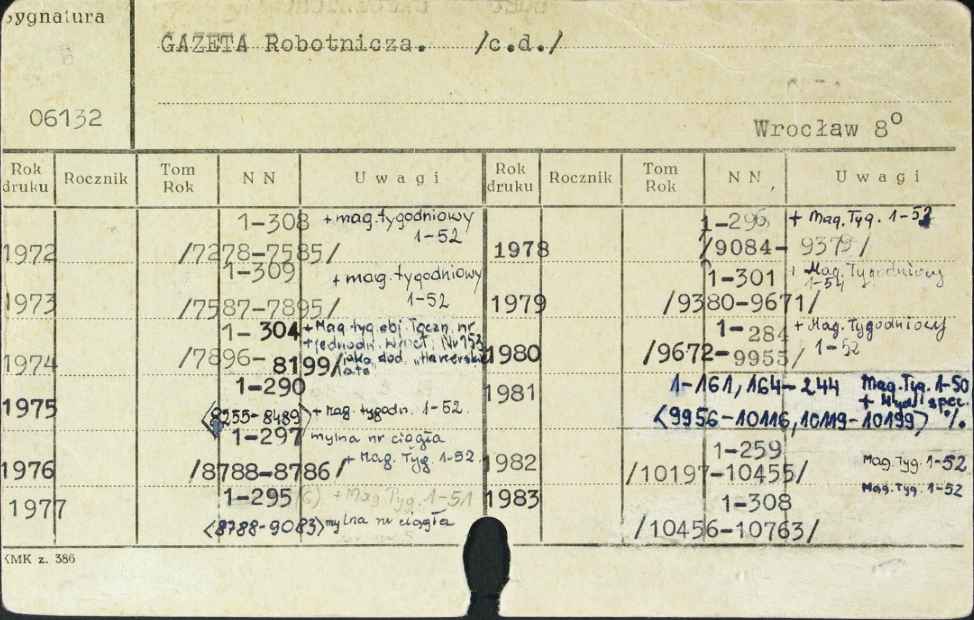 Sygnatura
GAZETA Robotnicza. /c.d./
06132
Wrocław 8°
Rok druku Rocznik Tom Rok N N Uwagi Rok druku Rocznik Tom Rok N N Uwagi
1972 1-308 + mag. tygodniowy 1-52
/7278-7585/
1973 1-309 + mag. tygodniowy 1-52
/7587-7895/
1974 1-304 + Mag. tyg. obj. łączn. nr
/7896-8199/ jako dod.
1975 1-290
<8255-8489> + Mag. tygodn. 1-52.
1976 1-297 mylna nr ciągła
/8788-8786/ + Mag. Tyg. 1-52.
1977 1-295 + Mag. Tyg. 1-51
<8788-9083> mylna nr ciągła
1978 1-296 + Mag. Tyg. 1-52
/9084-9379/
1979 1-301 + Mag. Tygodniowy 1-54
/9380-9671/
1980 1-284 + Mag. Tygodniowy 1-52
/9672-9955/
1981 1-161, 164-244 Mag. Tyg. 1-50
+ Wyd. spec.
<9956-10116, 10119-10199> %.
1982 1-259 Mag. Tyg. 1-52
/10197-10455/
1983 1-308 Mag. Tyg. 1-52
/10456-10763/
KMK z. 386